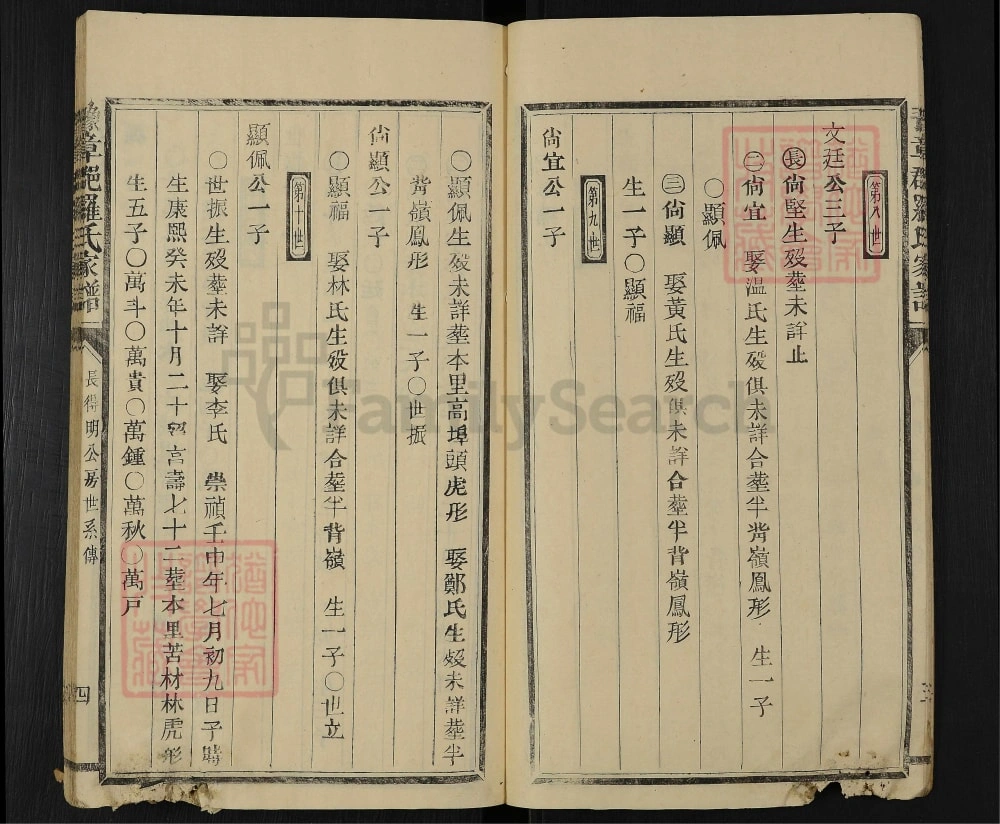 第八世
文廷公三子
長尙堅生歿塟未詳止
二尙宜　娶温氏生歿俱未詳合塟半背嶺鳳形　生一子
〇顯佩
三尙顯　娶黃氏生歿俱未詳合塟半背嶺鳳形
生一子〇顯福
第九世
尙宜公一子
〇顯佩生歿未詳塟本里高埠頭虎形　娶鄭氏生歿未詳塟半
背嶺鳳形　生一子〇世振
尙顯公一子
〇顯福　娶林氏生歿俱未詳合塟半背嶺　生一子〇世立
第十世
顯佩公一子
〇世振生歿塟未詳　娶李氏　崇禎壬申年七月初九日子時
生康熙癸未年十月二十四吉壽七十二塟本里苦材林虎形
生五子〇萬斗〇萬貴〇萬鍾〇萬秋〇萬戸
豫章郡羅氏家譜
長得明公房世系傳
四
FamilySearch